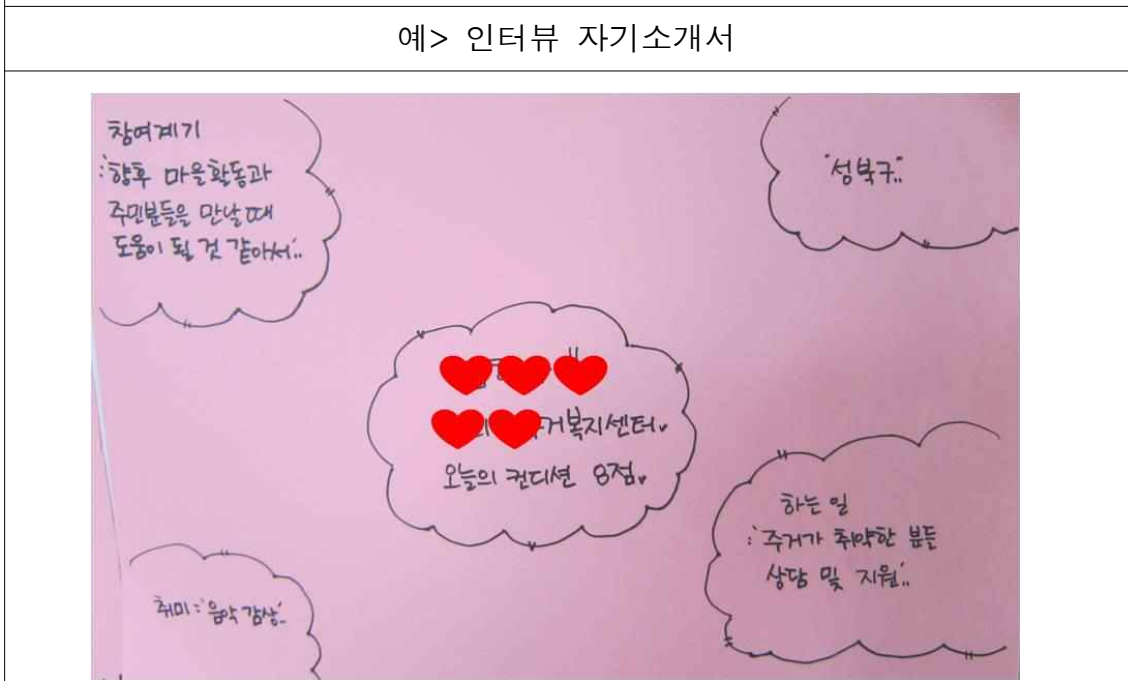 예> 인터뷰 자기소개서
참여계기
:향후 마을활동과
주민분들을 만날 때
도움이 될 것 같아서..
"성북구..
거복지센터.
오늘의 컨디션 8점.
하는 일
: 주거가 취약한 분들
상담 및 지원..
취미 : 음악 감상..